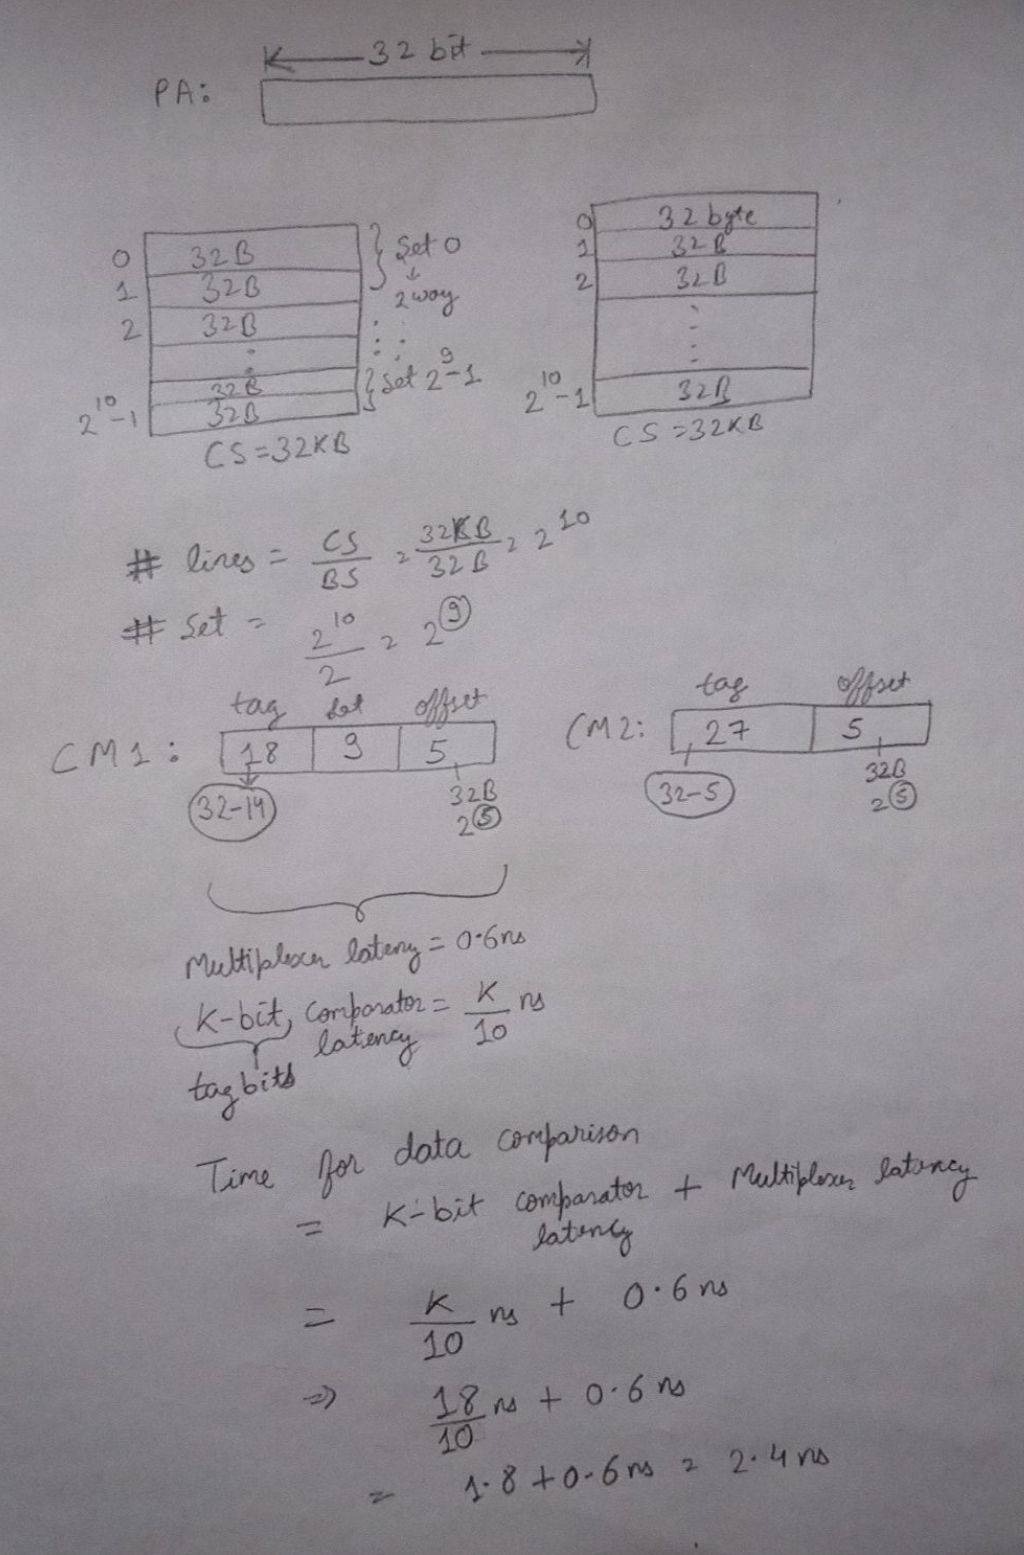 32 bit
PA:
0 32B } Set 0
1 32B 2 way
2 32B
32B } Set 2^9-1
2^10-1 32B
CS=32KB
0 32 byte
1 32B
2 32B
2^10-1 32B
CS=32KB
# lines = CS/BS = 32KB/32B = 2^10
# Set = 2^10/2 = 2^9
tag set offset
CM1: 18 9 5
32-14 32B
2^5
tag offset
CM2: 27 5
32-5 32B
2^5
Multiplexer lateny = 0.6ns
K-bit, comparator latency = K/10 ns
tag bits
Time for data comparison
= K-bit comparator latency + Multiplexer latency
= K/10 ns + 0.6 ns
⇒ 18/10 ns + 0.6 ns
= 1.8 + 0.6 ns = 2.4 ns